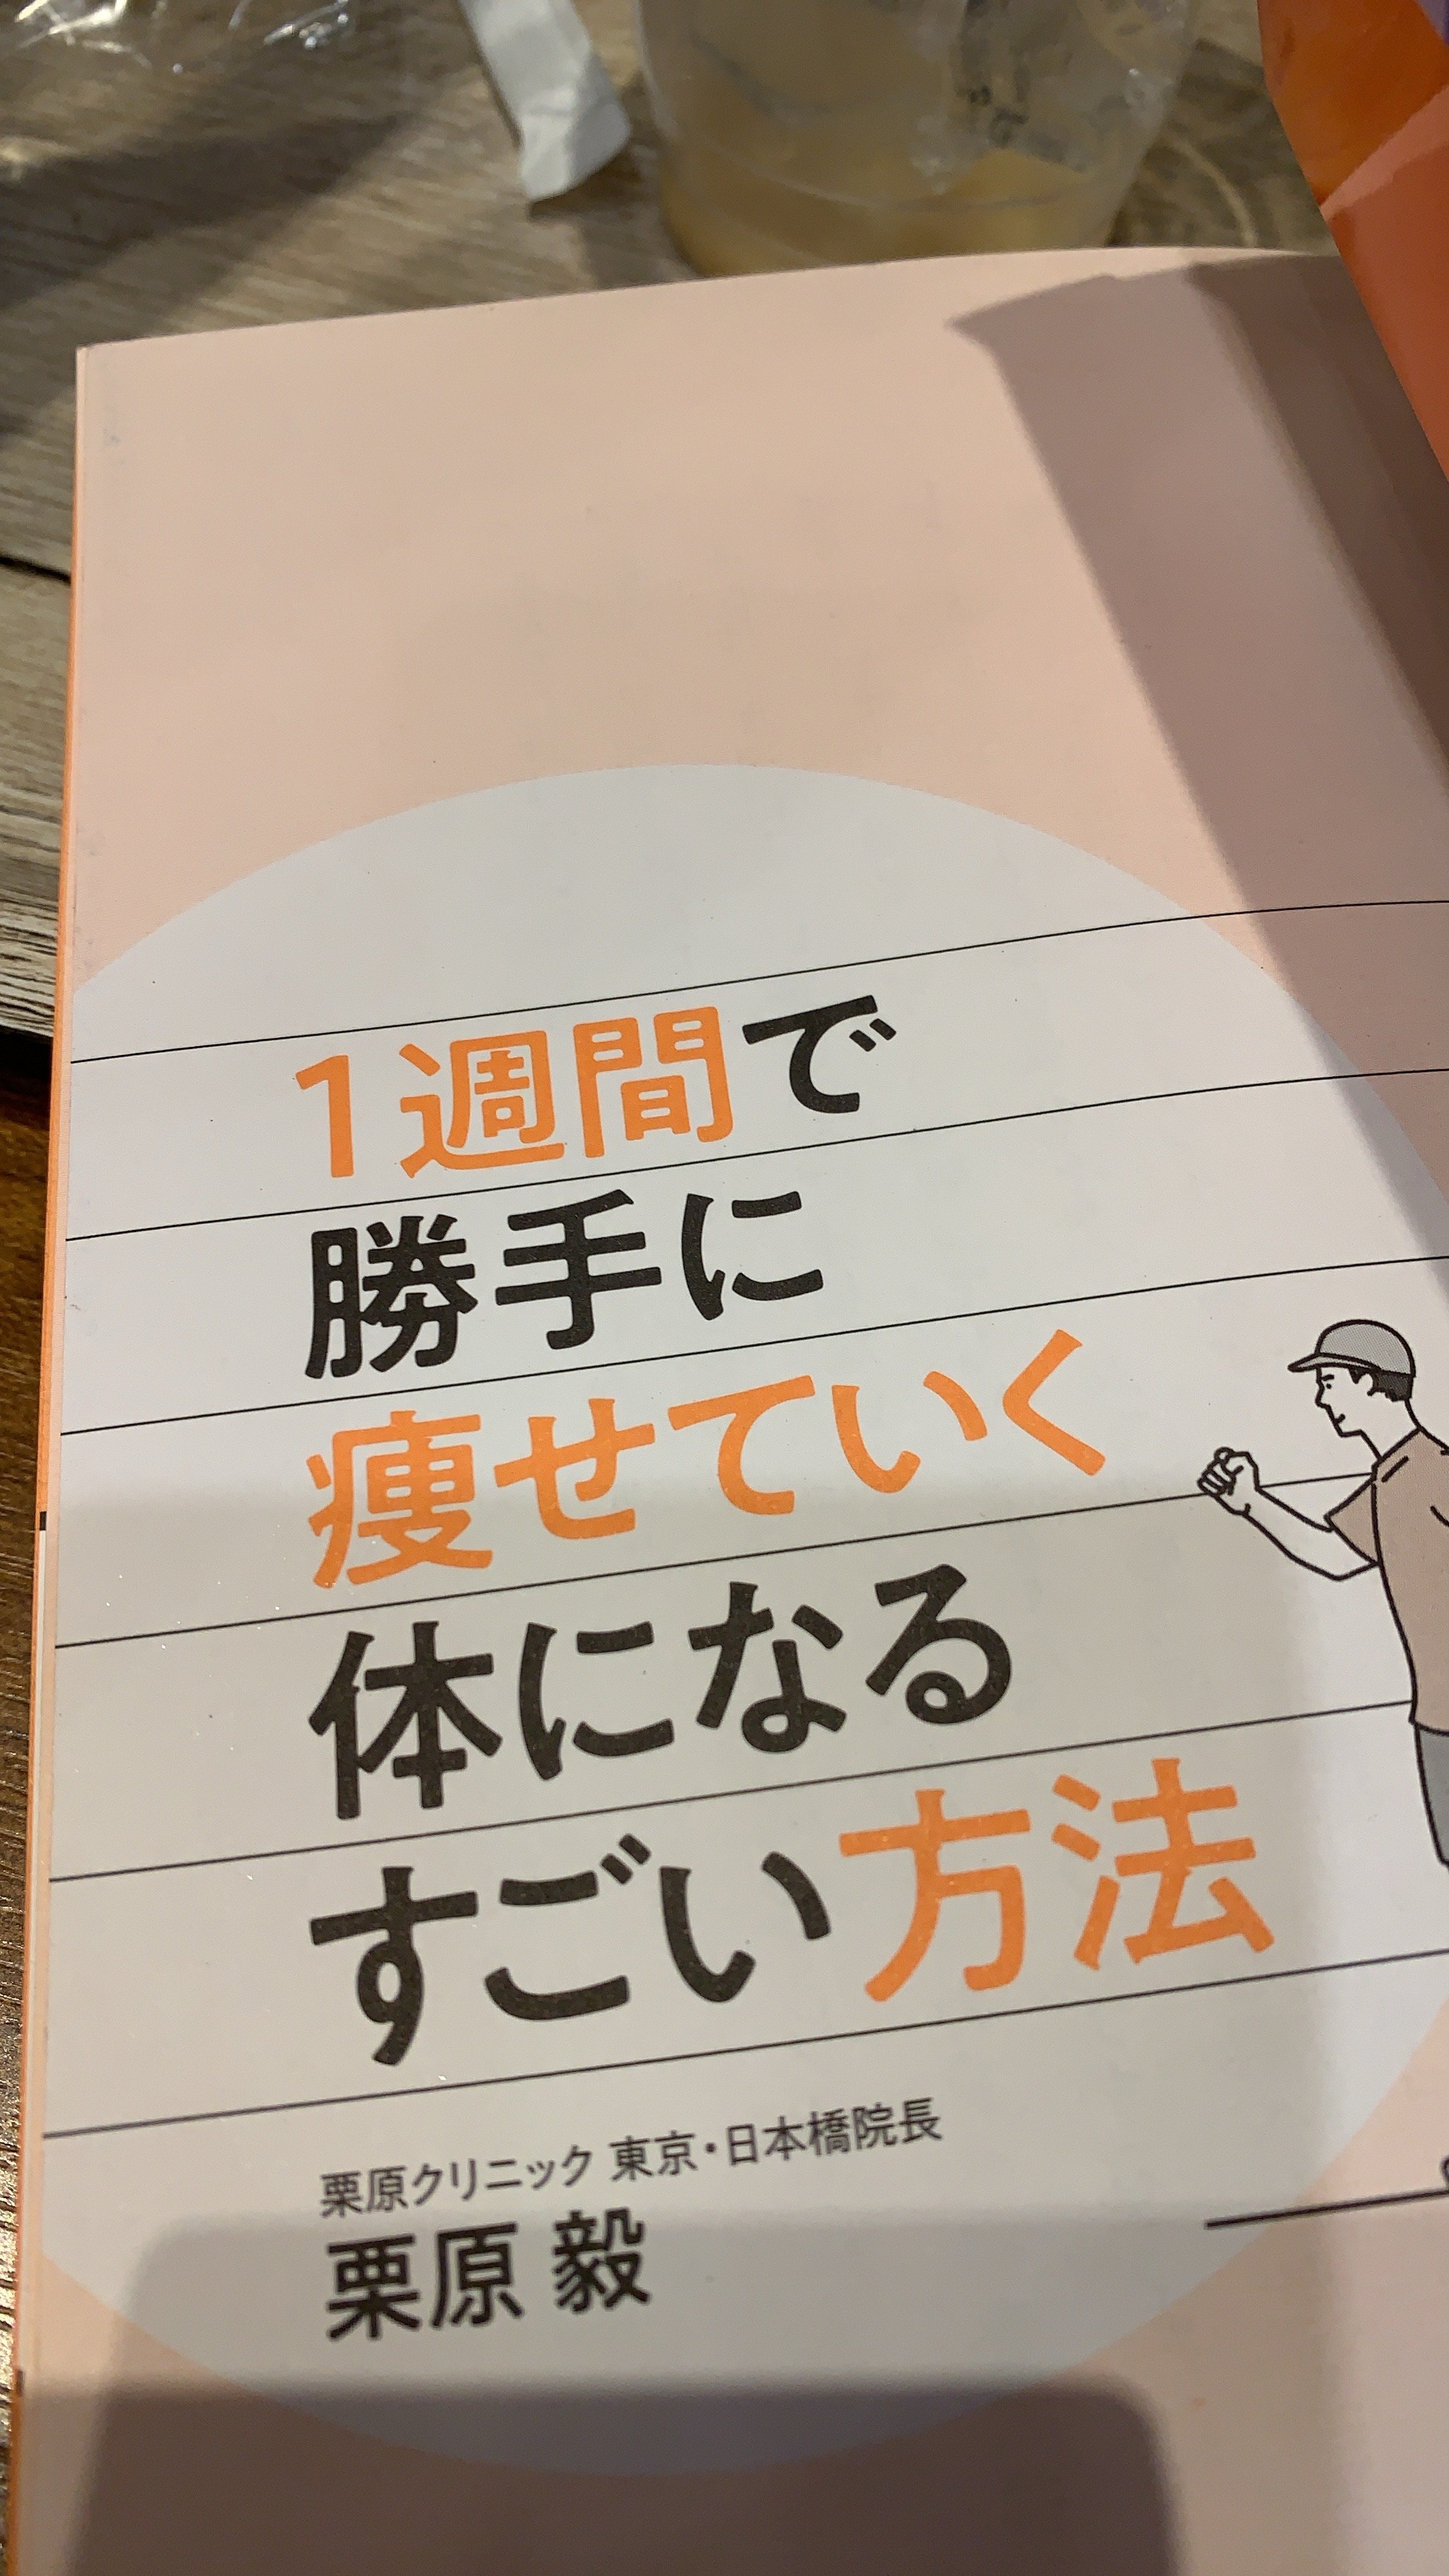 1週間で
勝手に
痩せていく
体になる
すごい方法
栗原クリニック 東京・日本橋院長
栗原 毅